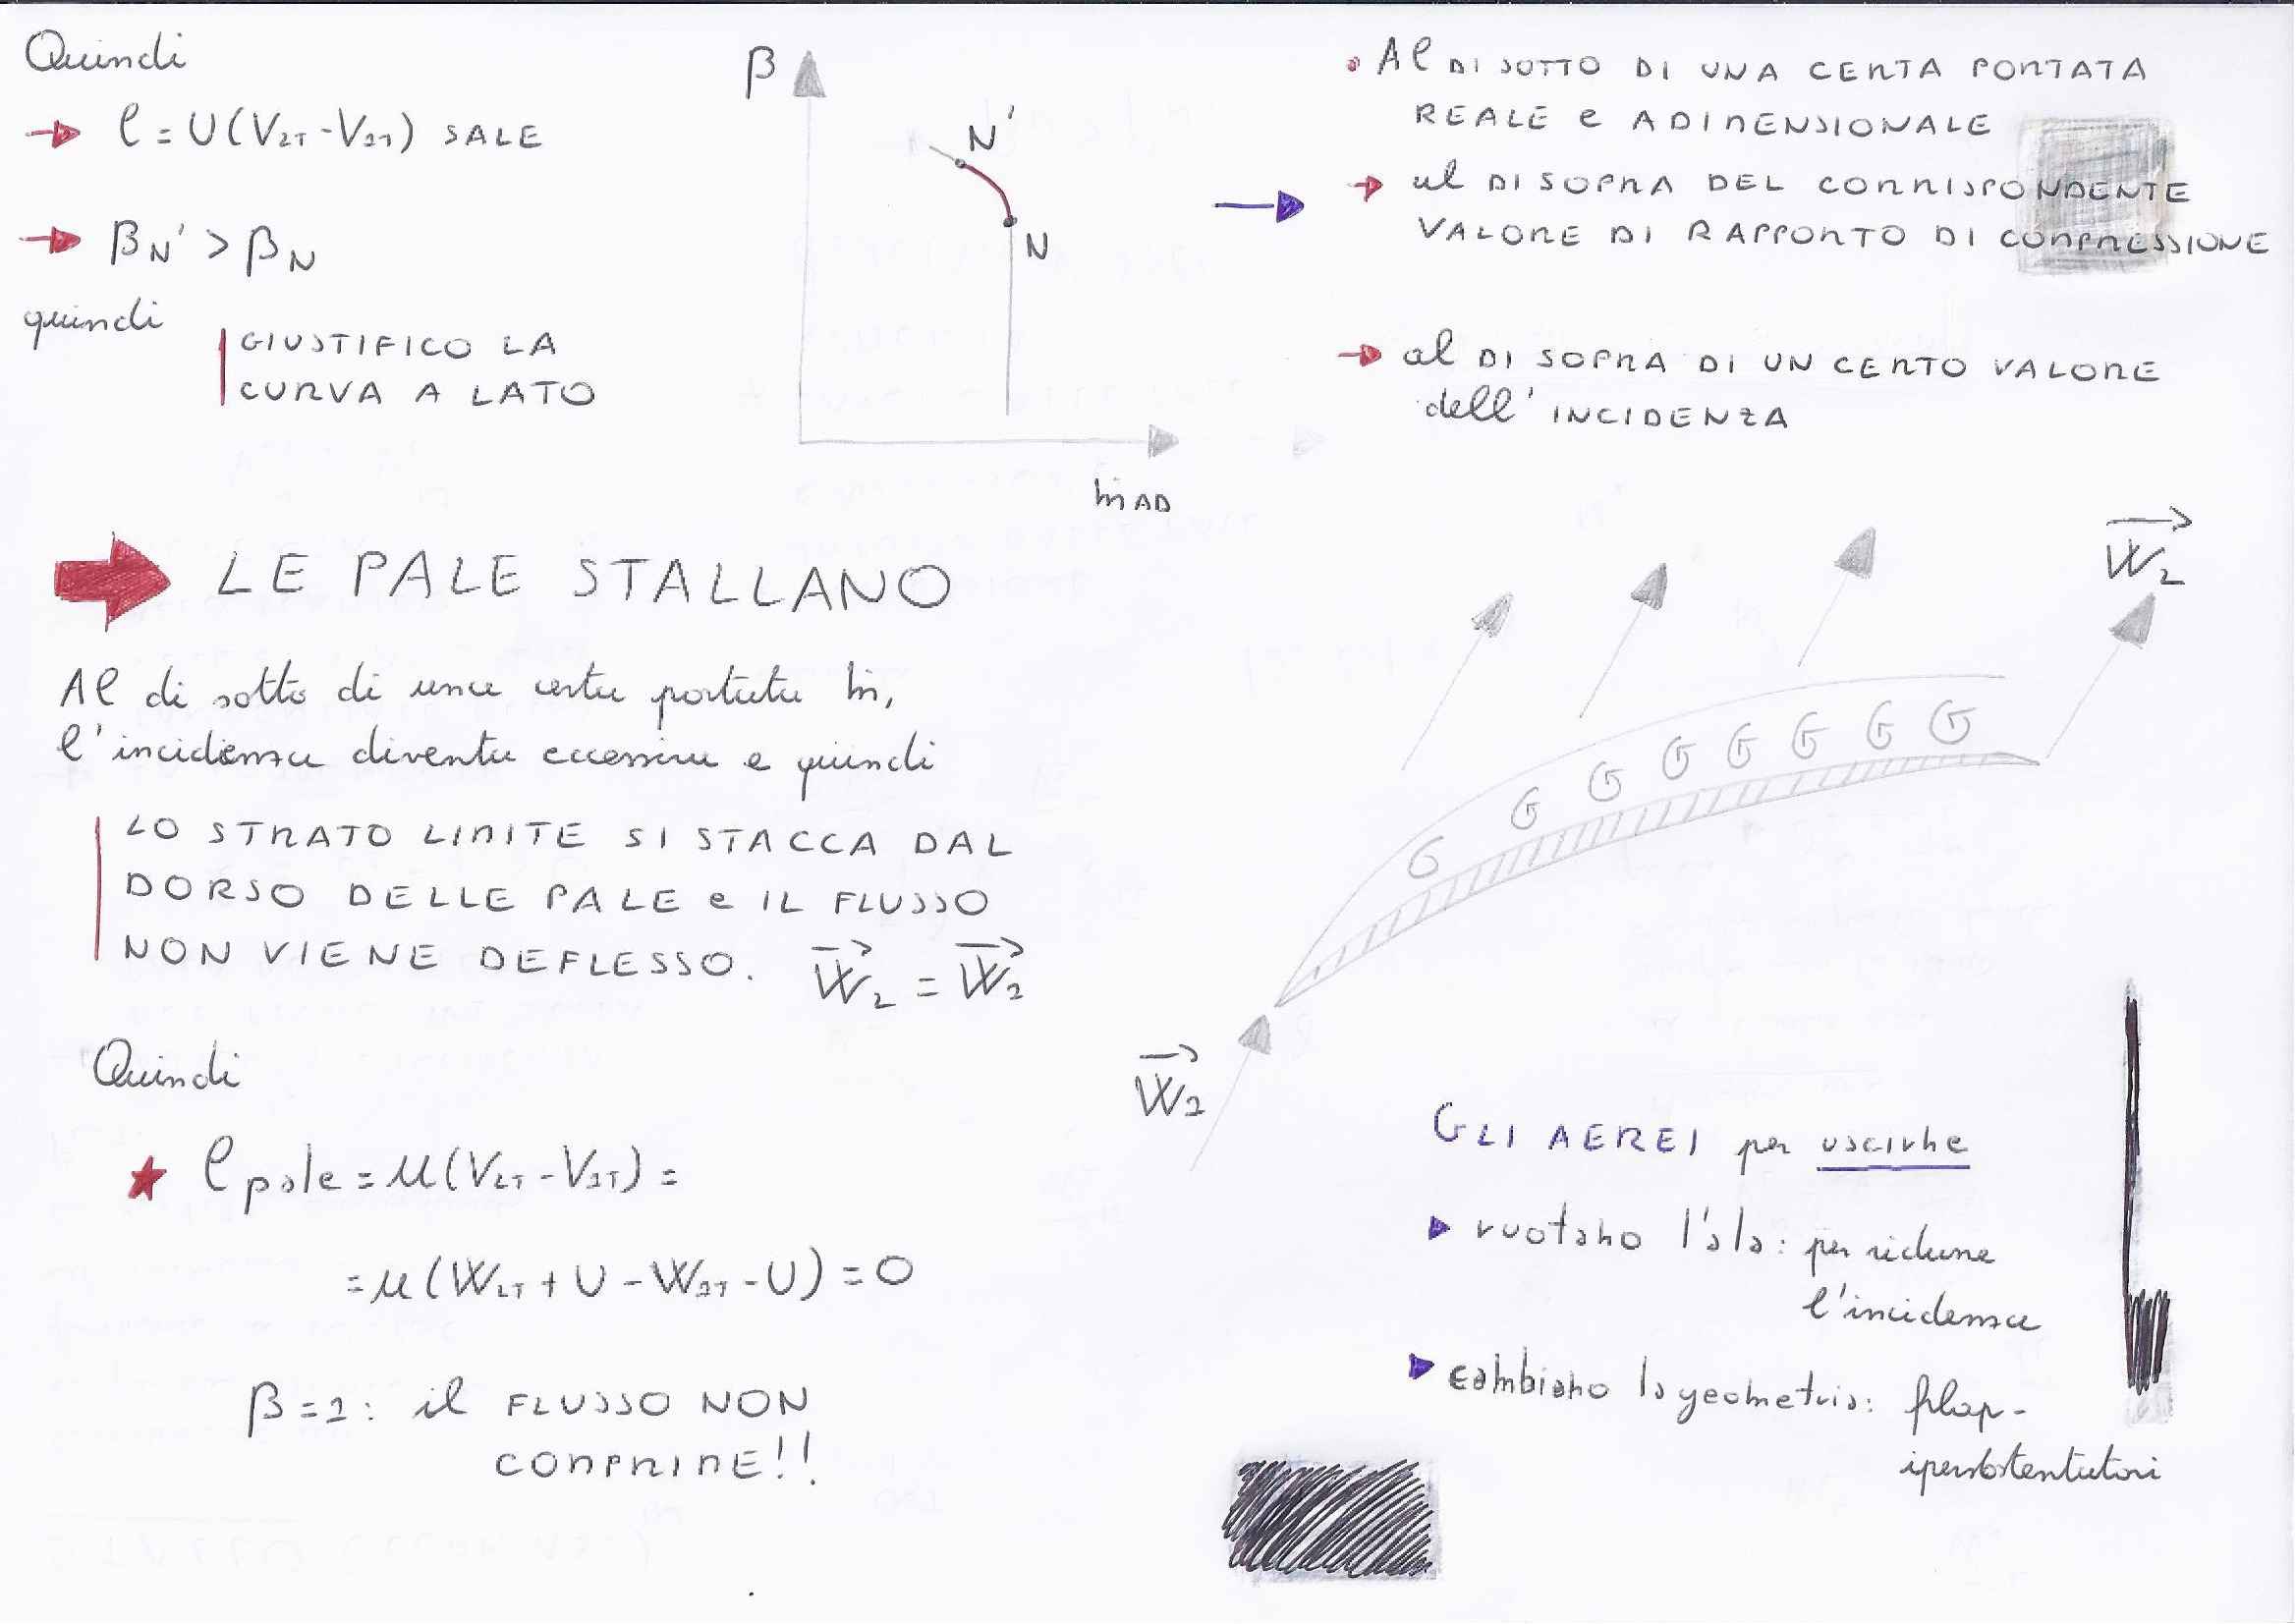 Quindi
→ l = U(V2T - V1T) SALE
→ βN' > βN
quindi
GIUSTIFICO LA
CURVA A LATO
β
N'
N
ṁAD
→
• Al DI SOTTO DI UNA CERTA PORTATA
REALE e ADIMENSIONALE
→ al DI SOPRA DEL CORRISPONDENTE
VALORE DI RAPPORTO DI COMPRESSIONE
→ al DI SOPRA DI UN CERTO VALORE
dell' INCIDENZA
LE PALE STALLANO
Al di sotto di una certa portata ṁ,
l'incidenza diventa eccessiva e quindi
LO STRATO LIMITE SI STACCA DAL
DORSO DELLE PALE e IL FLUSSO
NON VIENE DEFLESSO. W2 = W1
Quindi
★ l pale = u(V2T - V1T) =
= u(W2T + U - W1T - U) = 0
β = 1: il FLUSSO NON
COMPRIME!!
W2
G G G G G G G
W1
GLI AEREI per uscirne
▶ ruotano l'ala: per ridurre
l'incidenza
▶ cambiano la geometria: flap-
ipersostentatori